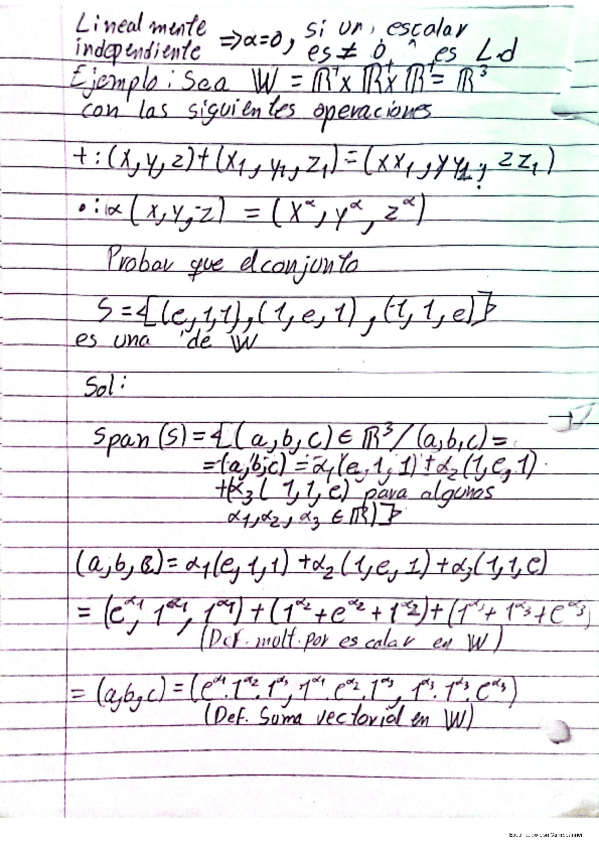 Linealmente
independiente ⇒ α=0, si un escalar
es ≠ 0 ^ es L.d
Ejemplo: Sea W = ℝ⁺ x ℝ⁺ x ℝ⁺ = ℝ³
con las siguientes operaciones
+:(x,y,z)+(x₁,y₁,z₁)=(xx₁,yy₁,zz₁)
•:α(x,y,z) = (x^α, y^α, z^α)
Probar que el conjunto
S={(e,1,1),(1,e,1),(1,1,e)}
es una de W
Sol:
Span(S)={(a,b,c)∈ℝ³/(a,b,c)=
=(a,b,c)=α₁(e,1,1)+α₂(1,e,1)
+(α₃(1,1,e) para algunos
α₁,α₂,α₃∈ℝ)}
(a,b,c)=α₁(e,1,1)+α₂(1,e,1)+α₃(1,1,e)
=(e^α₁, 1^α₁, 1^α₁)+(1^α₂+e^α₂+1^α₂)+(1^α₃+1^α₃+e^α₃)
(Def. mult. por escalar en W)
=(a,b,c)=(e^α₁.1^α₂.1^α₃, 1^α₁.e^α₂.1^α₃, 1^α₃.1^α₃.e^α₃)
(Def. Suma vectorial en W)